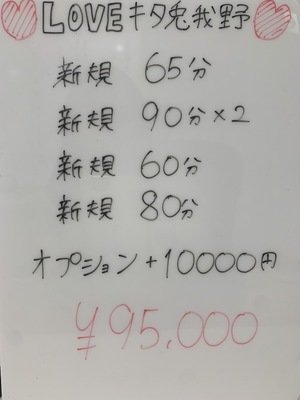 LOVEキタ兎我野
新規 65分
新規 90分×2
新規 60分
新規 80分
オプション+10000円
¥95,000